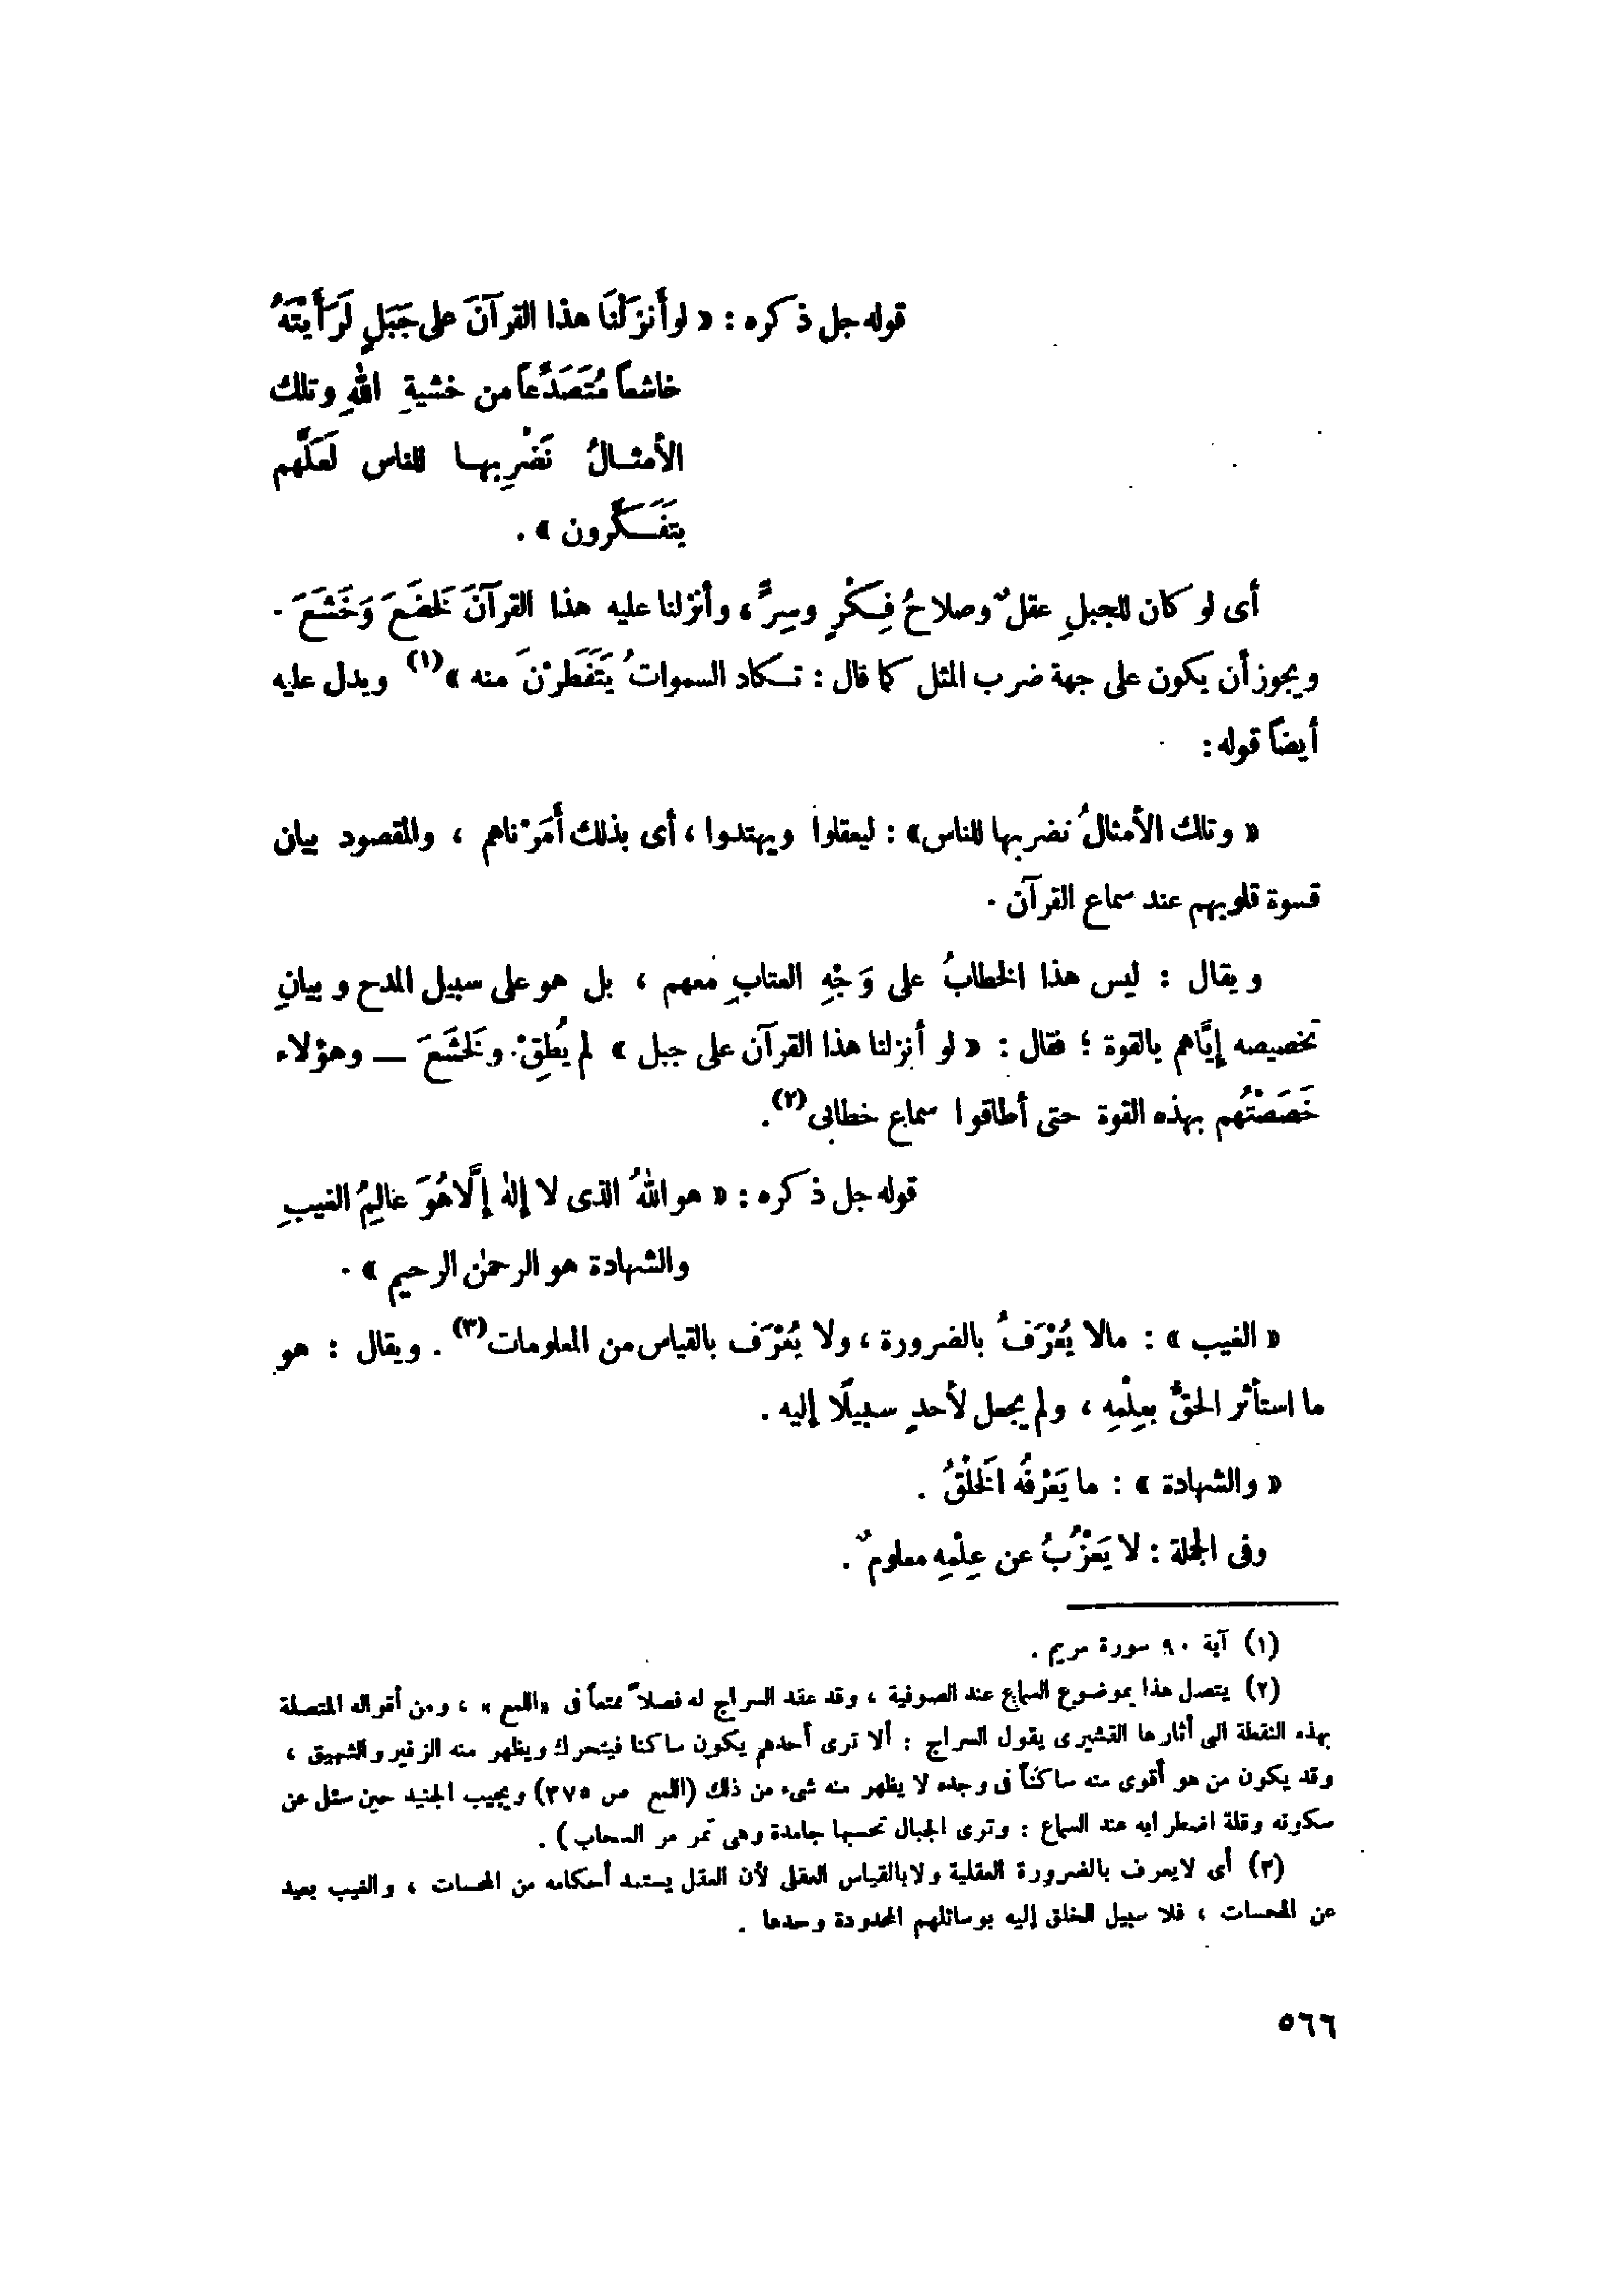 قوله جل ذكره : « لو أَنزَلْنَا هذا القرآنَ على جَبَلٍ لَرَأَيْتَهُ
خاشعاً مُتَصَدِّعاً من خشيةِ اللهِ وتلك
الأمثــالُ نَضْرِبهــا للناس لَعَلَّهم
يتفَــكَّرون » .
أى لو كان للجبلِ عقلٌ وصلاحُ فِــكْرٍ وسِرٍّ ، وأنزلنا عليه هذا القرآنَ لَخضَعَ وَخَشَعَ .
ويجوز أن يكون على جهة ضرب المثل كما قال : تــكاد السموات يَتَفَطَّرْنَ منه »(١) ويدل عليه
أيضاً قوله :
« وتلك الأمثالُ نضربها للناس» : ليعقلوا ويهتدوا ، أى بذلك أَمَرْناهم ، والمقصود بيان
قسوة قلوبهم عند سماع القرآن .
ويقال : ليس هذا الخطابُ على وَجْهِ العتابِ معهم ، بل هو على سبيل المدح وبيانِ
تخصيصه إيَّاهم بالقوة ؛ فقال : « لو أنزلنا هذا القرآن على جبل » لم يُطِقْ . ولَخشَعَ — وهؤلاء
خَصَصْتُهم بهذه القوة حتى أطاقوا سماع خطابى(٢) .
قوله جل ذكره : « هو اللهُ الذى لا إلهَ إلَّا هُوَ عَالِمُ الغيبِ
والشهادة هو الرحمٰن الرحيم » .
« الغيب » : مالا يُعْرَفُ بالضرورة ، ولا يُعْرَف بالقياس من المعلومات(٣) . ويقال : هو
ما استأثر الحقُّ بعِلْمِه ، ولم يجعل لأحدٍ سبيلًا إليه .
« والشهادة » : ما يَعْرِفُه الَخلْقُ .
وفى الجملة : لا يَعْزُبُ عن عِلْمِهِ معلومٌ .
(١) آية ٩٠ سورة مريم .
(٢) يتصل هذا بموضوع السماع عند الصوفية ، وقد عقد السراج له فصلاً ممتعاً فى «اللمع » ، ومن أقواله المتصلة
بهذه النقطة التى أثارها القشيرى يقول السراج : ألا ترى أحدهم يكون ساكنا فيتحرك ويظهر منه الزفير والشهيق ،
وقد يكون من هو أقوى منه ساكناً فى وجده لا يظهر منه شىء من ذلك (اللمع ص ٣٧٥) ويجيب الجنيد حين سئل عن
سكونه وقلة اضطرابه عند السماع : وترى الجبال تحسبها جامدة وهى تمر مر السحاب ) .
(٣) أى لايعرف بالضرورة العقلية ولابالقياس العقلى لأن العقل يستمد أحكامه من المحسات ، والغيب بعيد
عن المحسات ، فلا سبيل للخلق إليه بوسائلهم المحدودة وحدها .
٥٦٦